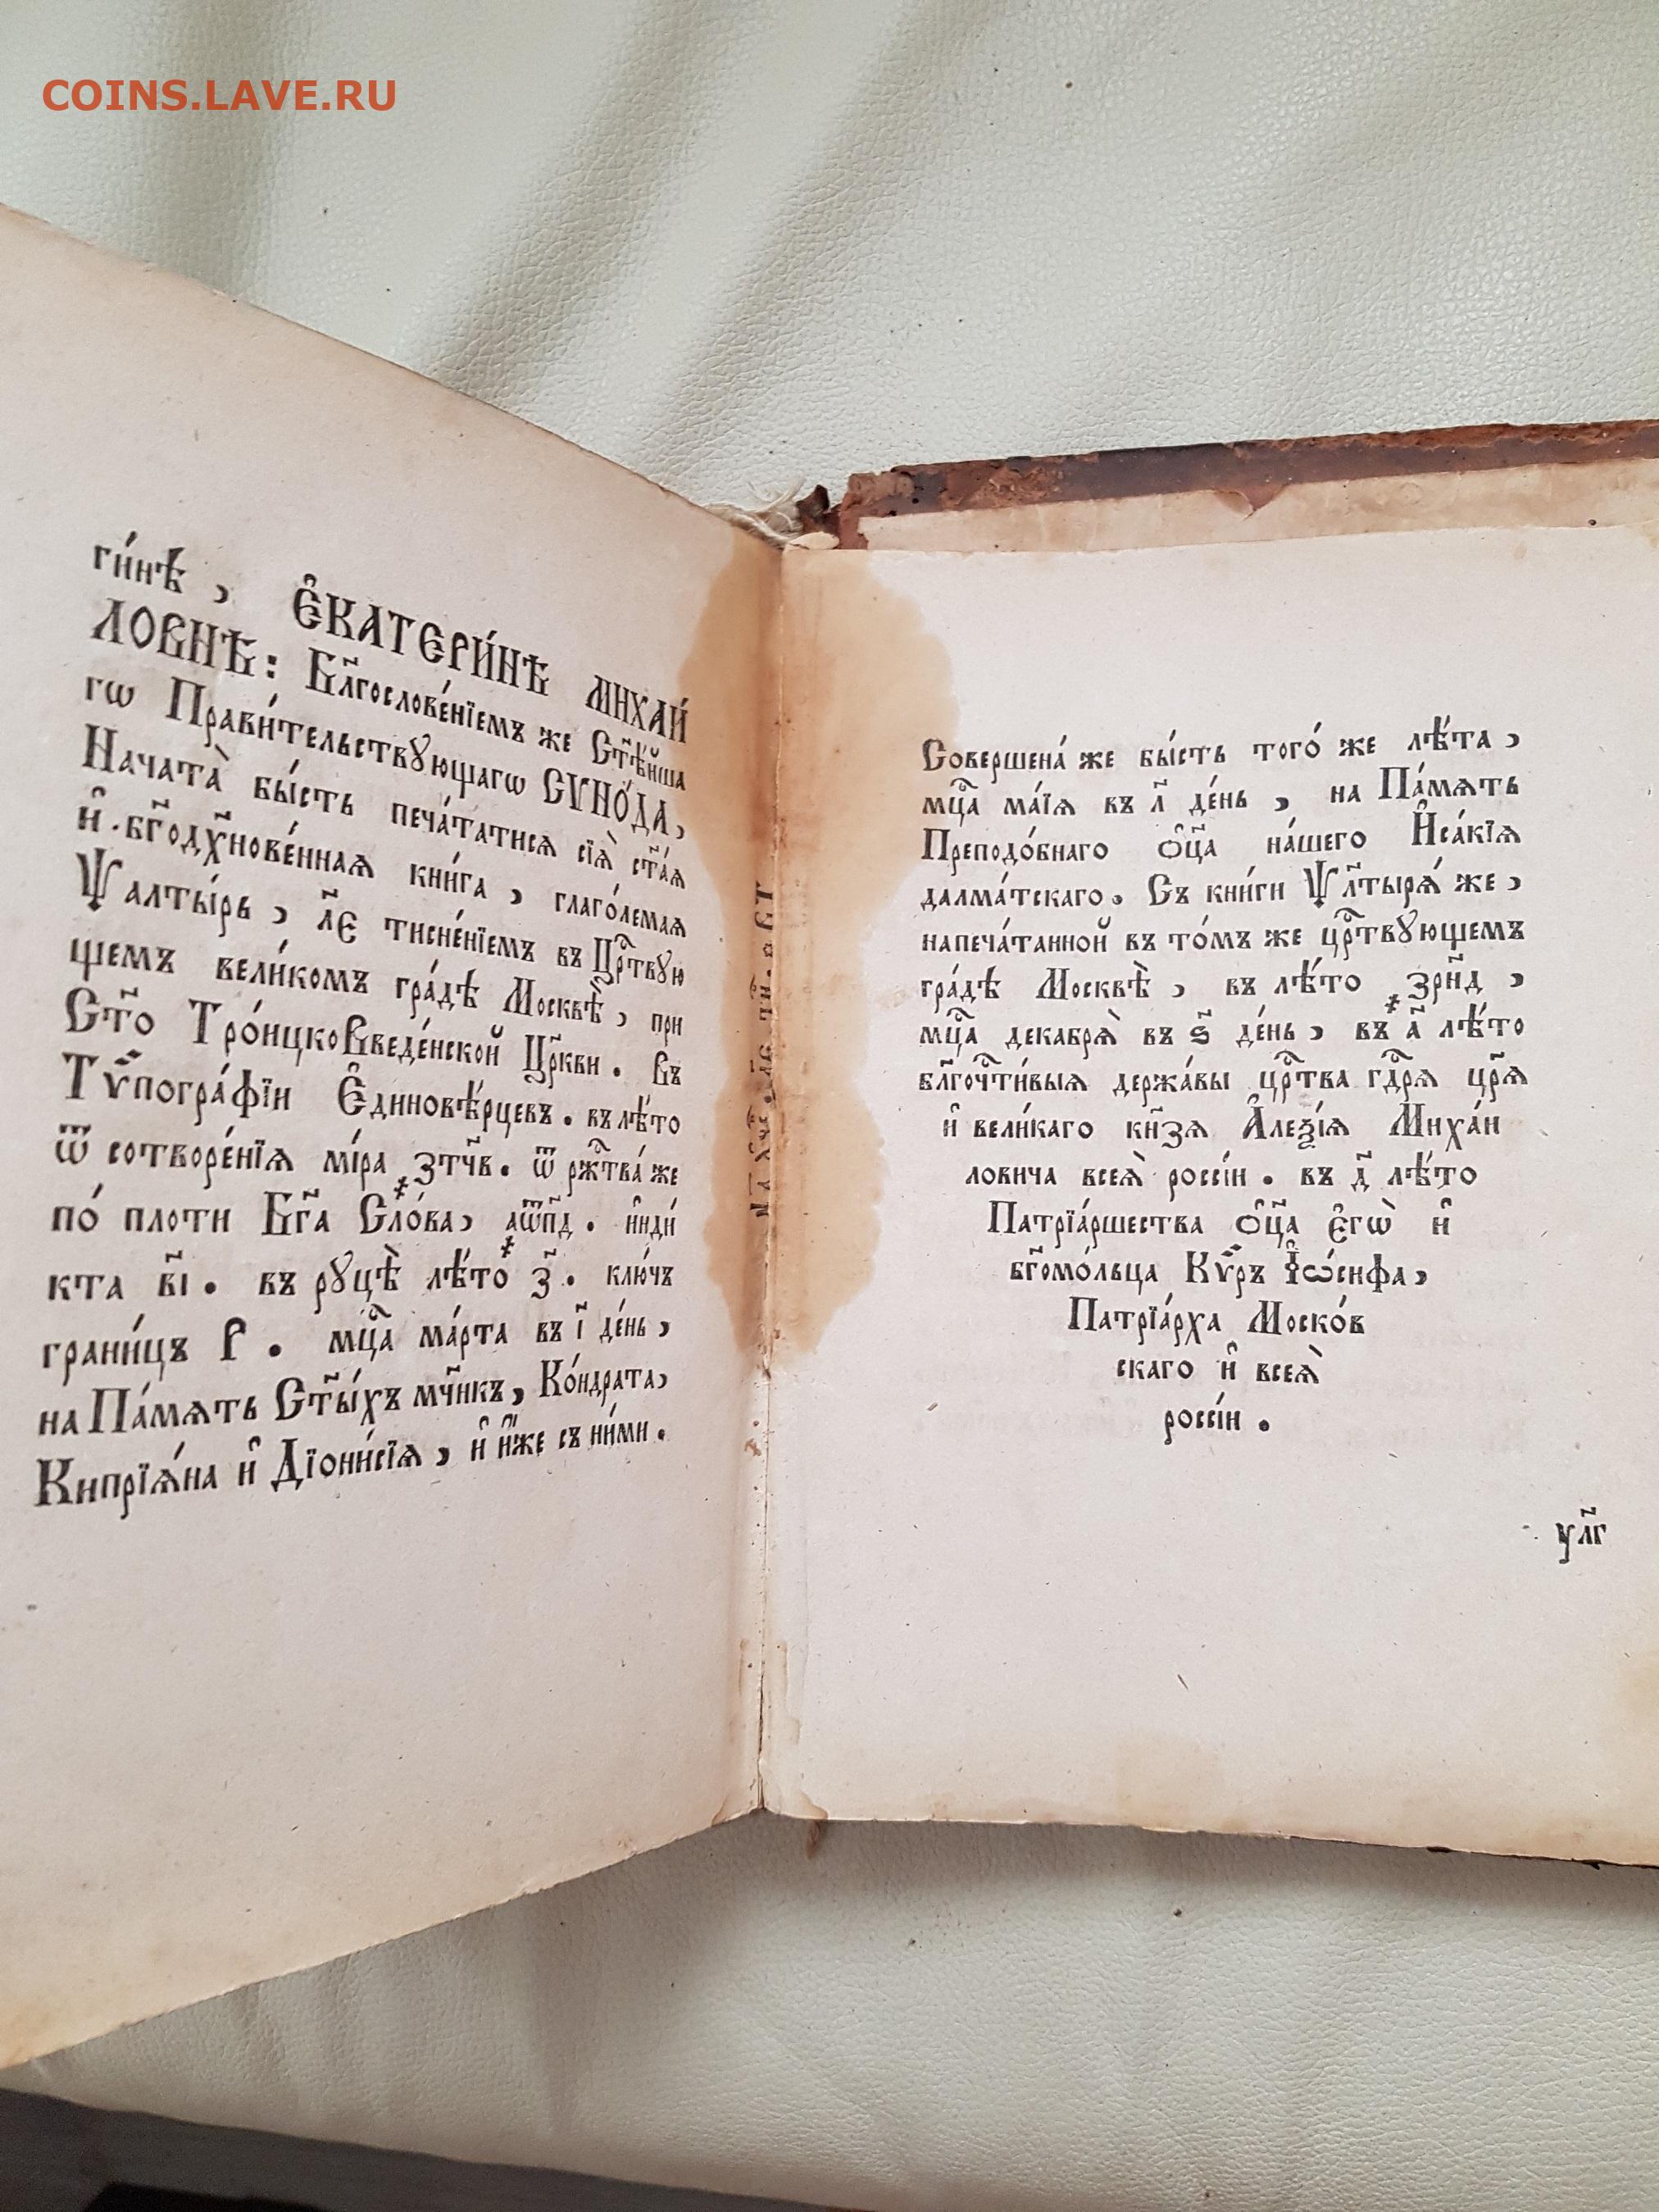 COINS.LAVE.RU
ги́нѣ , Є҆КАТЕРИ́НѢ МИХАИ́
ЛОВНѢ: Бл҃гослове́нїемъ же Ст҃ѣ́йша
гѡ Прави́тельствꙋющагѡ СѴНО́ДА,
Начата̀ бы́сть печа́татися сїѧ̀ ст҃а́ѧ
и҆ бг҃одх҃нове́ннаѧ кни́га , глаго́лемаѧ
Ѱалты́рь , л҃є тисне́нїемъ въ Цр҃твꙋю
щемъ вели́комъ гра́дѣ Москвѣ̀ , при
Ст҃о Тро́ицкоВведе́нской Цр҃кви . Въ
Тѷпогра́фїи Є҆диновѣ́рцевъ . въ лѣ́то
ѿ сотворе́нїѧ мі́ра ҂зтч҃в . ѿ рж҃тва́ же
по́ плоти Бг҃а Сло́ва, ҂аѿп҃д . и҆нди́
кта в҃і . въ рꙋцѣ̀ лѣ́то ҂з҃ . клю́чъ
грани́цъ Р . мц҃а ма́рта въ і҃ де́нь ,
на Па́мѧть Ст҃ы́хъ мч҃нкъ, Ко́ндрата,
Кипрїѧ́на и҆ Дїони́сїѧ , и҆ и҆̀же съ ни́ми .
Соверше́на́ же бы́сть того́ же лѣ́та ,
мц҃а ма́їѧ въ л҃ де́нь , на Па́мѧть
Преподо́бнаго ѻ҆ц҃а на́шего И҆са́кїѧ
далма́тскаго . Съ кни́ги Ѱлт҃ырѧ́ же ,
напеча́танной въ то́мъ же цр҃твꙋющемъ
гра́дѣ Москвѣ̀ , въ лѣ́то ҂зрн҃д ,
мц҃а декабрѧ̀ въ ѕ҃ де́нь , въ а҃ лѣ́то
бл҃гочт҃и́выѧ держа́вы цр҃тва гд҃рѧ цр҃ѧ
и҆ вели́каго кн҃зѧ А҆леѯі́ѧ Миха́и
ловича всеѧ̀ россі́и . въ д҃ лѣ́то
Патрїа́ршества ѻ҆ц҃а є҆гѡ̀ и҆
бг҃омо́льца Кѷ́ръ І҆ѡ́сифа ,
Патрїа́рха Моско́в
скаго и҆ всеѧ̀
россі́и .
ул҃г